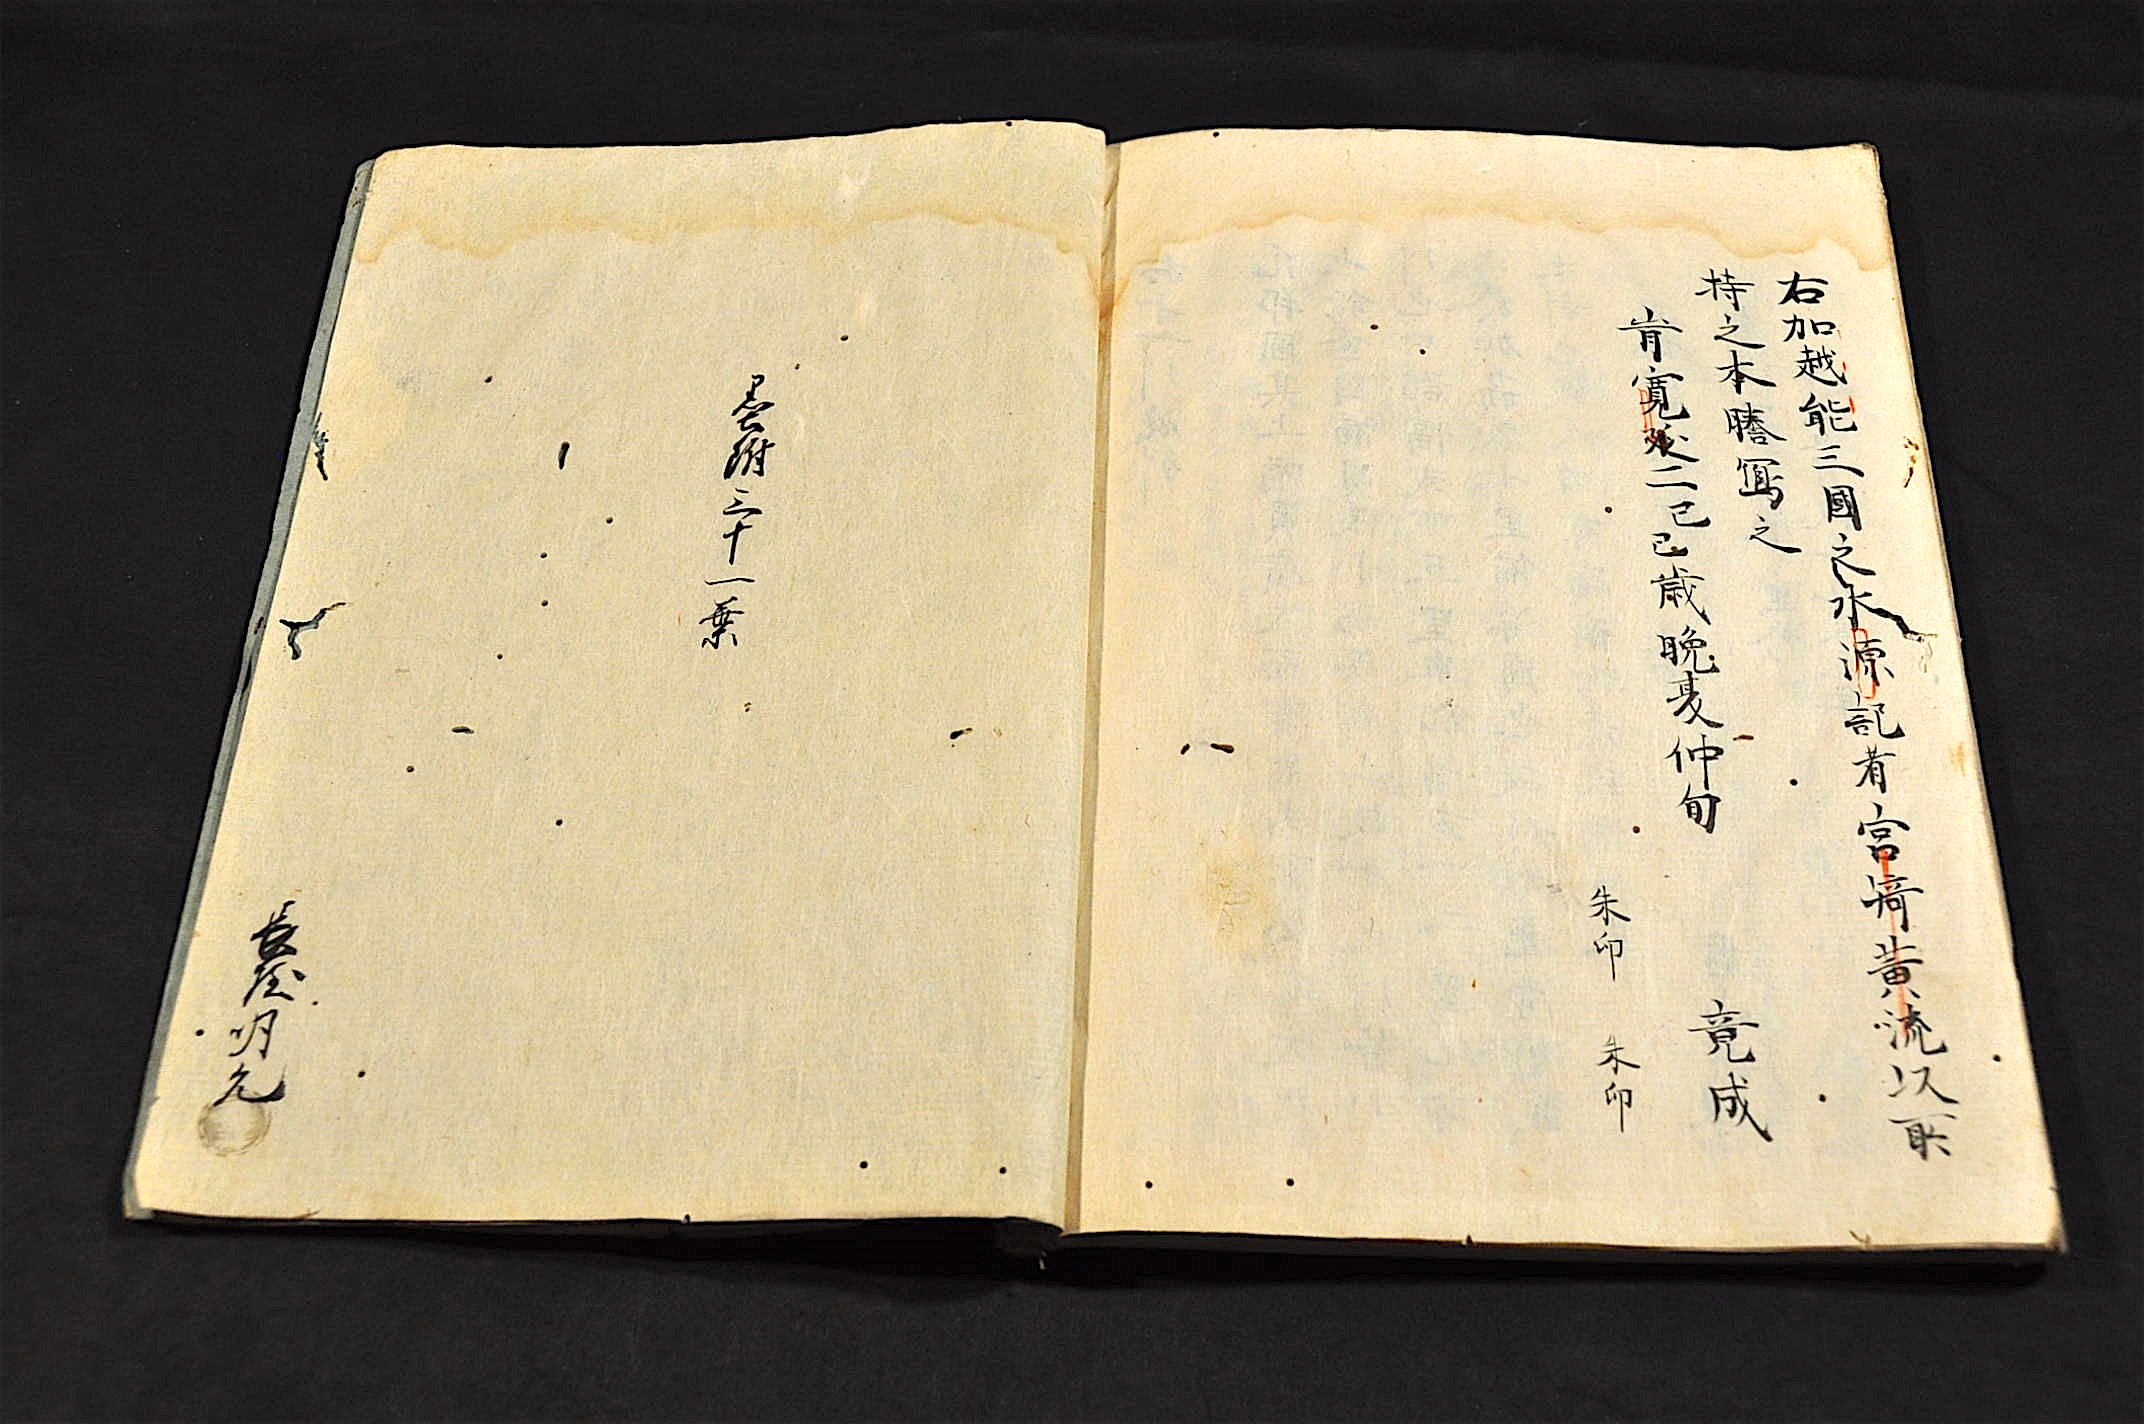 右加越能三國之水源記者宮﨑黄流以所
持之本謄寫之
旹寛延二己巳歳晩夏仲旬
竟成
朱印
朱印
墨附三十一葉
長谷明允